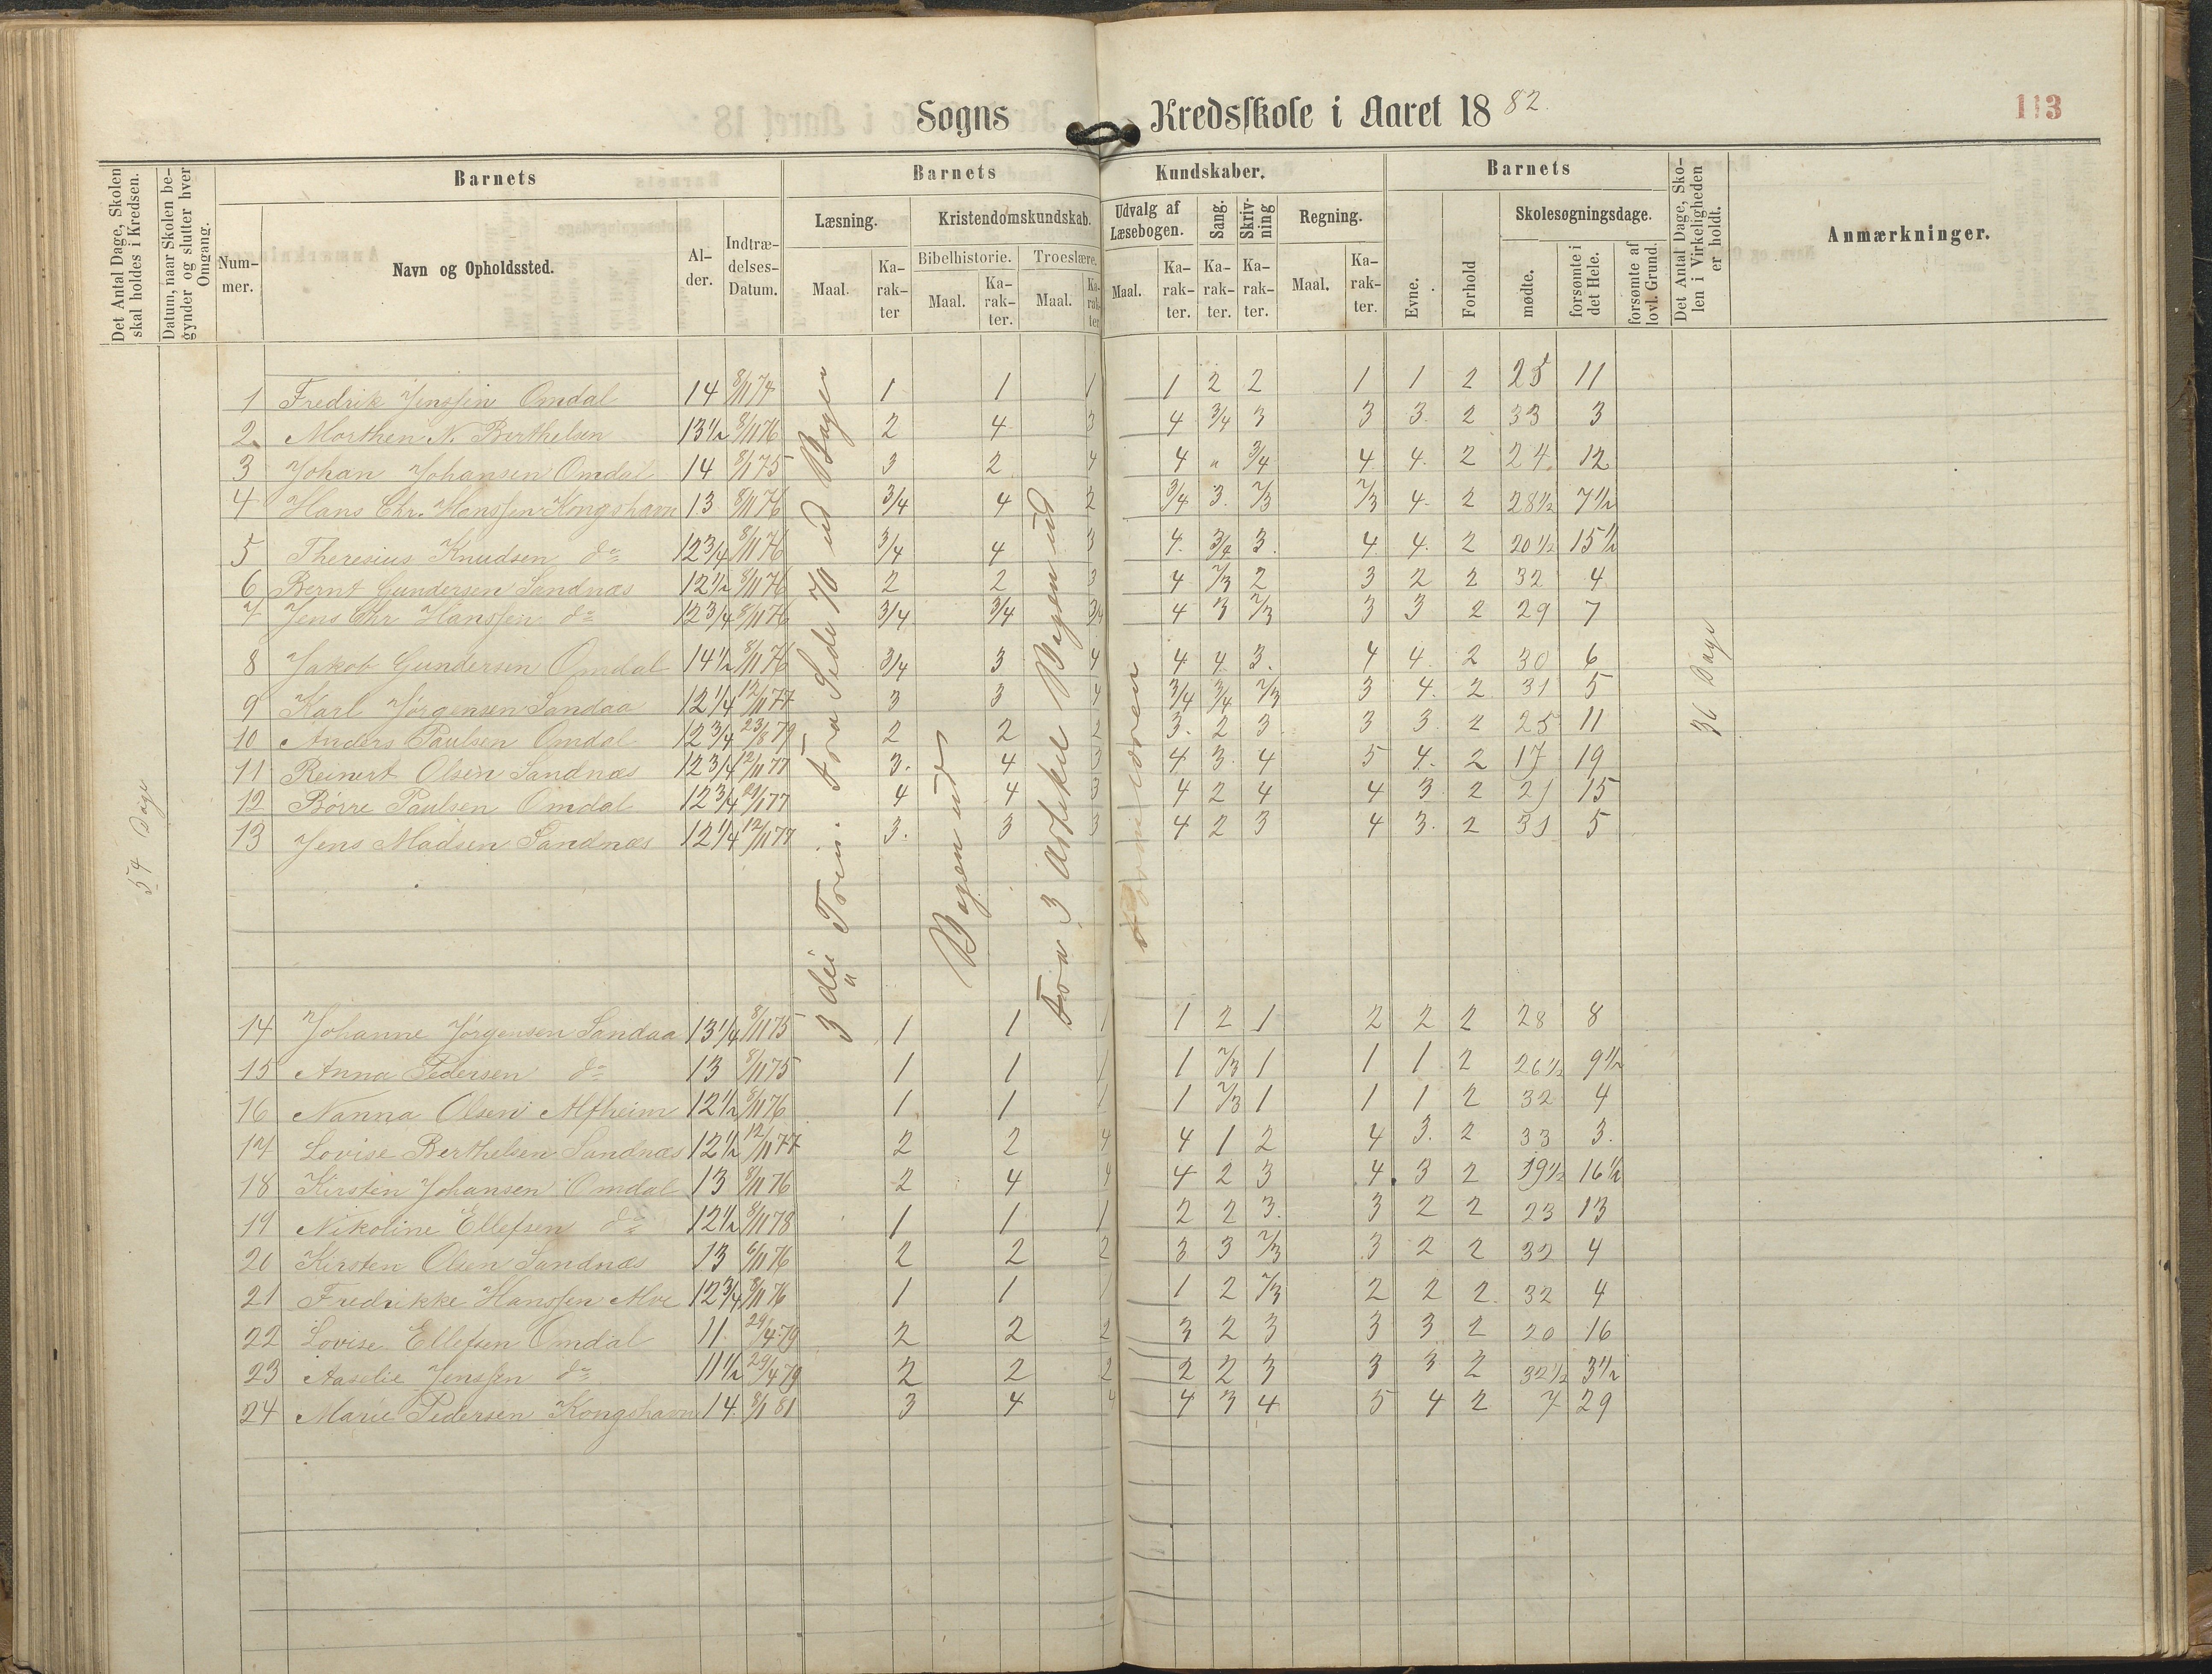 Sogns Kredsskole i Aaret 1882.
113
Det Antal Dage, Skolen skal holdes i Kredsen.
Datum, naar Skolen begynder og slutter hver Omgang.
Barnets
Nummer.
Navn og Opholdssted.
Alder.
Indtrædelses-Datum.
Barnets Kundskaber.
Læsning.
Maal.
Karakter
Kristendomskundskab.
Bibelhistorie.
Maal.
Karakter.
Troeslære.
Maal.
Karakter
Udvalg af Læsebogen.
Maal.
Karakter.
Sang.
Karakter.
Skrivning
Karakter.
Regning.
Maal.
Karakter.
Barnets
Evne.
Forhold
Skolesøgningsdage.
mødte.
forsømte i det Hele.
forsømte af lovl. Grund.
Det Antal Dage, Skolen i Virkeligheden er holdt.
Anmærkninger.
54 Dage
3die Trin: Fra Side 70 ud Bogen
Bogen ud
Fra 3 Artikel Bogen ud
36 Dage
1 Fredrik Jenssen Omdal 14 8/11 74 1 1 1 1 2 2 1 1 2 25 11
2. Morthen N. Berthelsen 13 1/2 8/11 76 2 4 3 4 3/4 3 3 3. 2 33 3
3 Johan Johansen Omdal 14 8/1 75 3 2 4 4 " 3/4 4 4. 2 24 12
4 Hans Chr. Hanssen Kongshavn 13 8/11 76 3/4 4 2 3/4 3. 2/3 2/3 4. 2 28 1/2 7 1/2
5 Theresius Knudsen do 12 3/4 8/11 76 3/4 4 3 4. 3/4 3. 4 4. 2 20 1/2 15 1/2
6 Bernt Gundersen Sandnæs 12 1/2 8/11 76 2 2 3 4 2/3 2 3 2 2 32 4
7 Jens Chr Hanssen do 12 3/4 8/11 76 3/4 3/4 3/4 4 3 2/3 3 3 2 29 7
8 Jakob Gundersen Omdal 14 1/2 8/11 76 3/4 3 4 4 4. 3. 4 4. 2 30 6
9 Karl Jørgensen Sandaa 12 1/4 12/11 77 3 3 4 3/4 3/4 2/3 3 4. 2 31 5
10 Anders Paulsen Omdal 12 3/4 23/8 79 2 2 2 3. 2 3. 3 3. 2 25 11
11 Reinert Olsen Sandnæs 12 3/4 12/11 77 3. 4 3 4 3. 4 5 4. 2 17 19
12 Børre Paulsen Omdal 12 3/4 77 4 4 3 4 2 4 4 3 2 21 15
13 Jens Madsen Sandnæs 12 1/4 12/11 77 3. 3 3 4 2 3 4 3. 2 31 5
14 Johanne Jørgensen Sandaa 13 1/4 8/11 75 1 1 1 1 2 1 2 2 2 28 8
15 Anna Pedersen do 13 8/11 75 1 1 1 1 2/3 1 1 1 2 26 1/2 9 1/2
16 Nanna Olsen Alfheim 12 1/2 8/11 76 1 1 1 1 2/3 1 1 1 2 32 4
17 Lovise Berthelsen Sandnæs 12 1/2 12/11 77 2 2 4 4 1 2 4 3. 2 33 3.
18 Kirsten Johansen Omdal 13 8/11 76 2 4 4 4 2 3 4. 3 2 19 1/2 16 1/2
19 Nikoline Ellefsen do 12 1/2 8/11 78 1 1 1 2 2 3. 3 2 2 23 13
20 Kirsten Olsen Sandnæs 13 6/11 76 2 2 2 3 3 2/3 3 2 2 32 4
21 Fredrikke Hanssen Alve 12 3/4 8/11 76 1 1 1 1 2 2/3 2 2 2 32 4
22 Lovise Ellefsen Omdal 11 29/4 79 2 2 2 3 2 3 3 3 2 20 16
23 Aaselie Jenssen do 11 1/2 29/4 79 2 2 2 2 2 3 3 3 2 32 1/2 3 1/2
24 Marie Pedersen Kongshavn 14 8/1 81 3 4 4 4 3 4 5 4 2 7 29